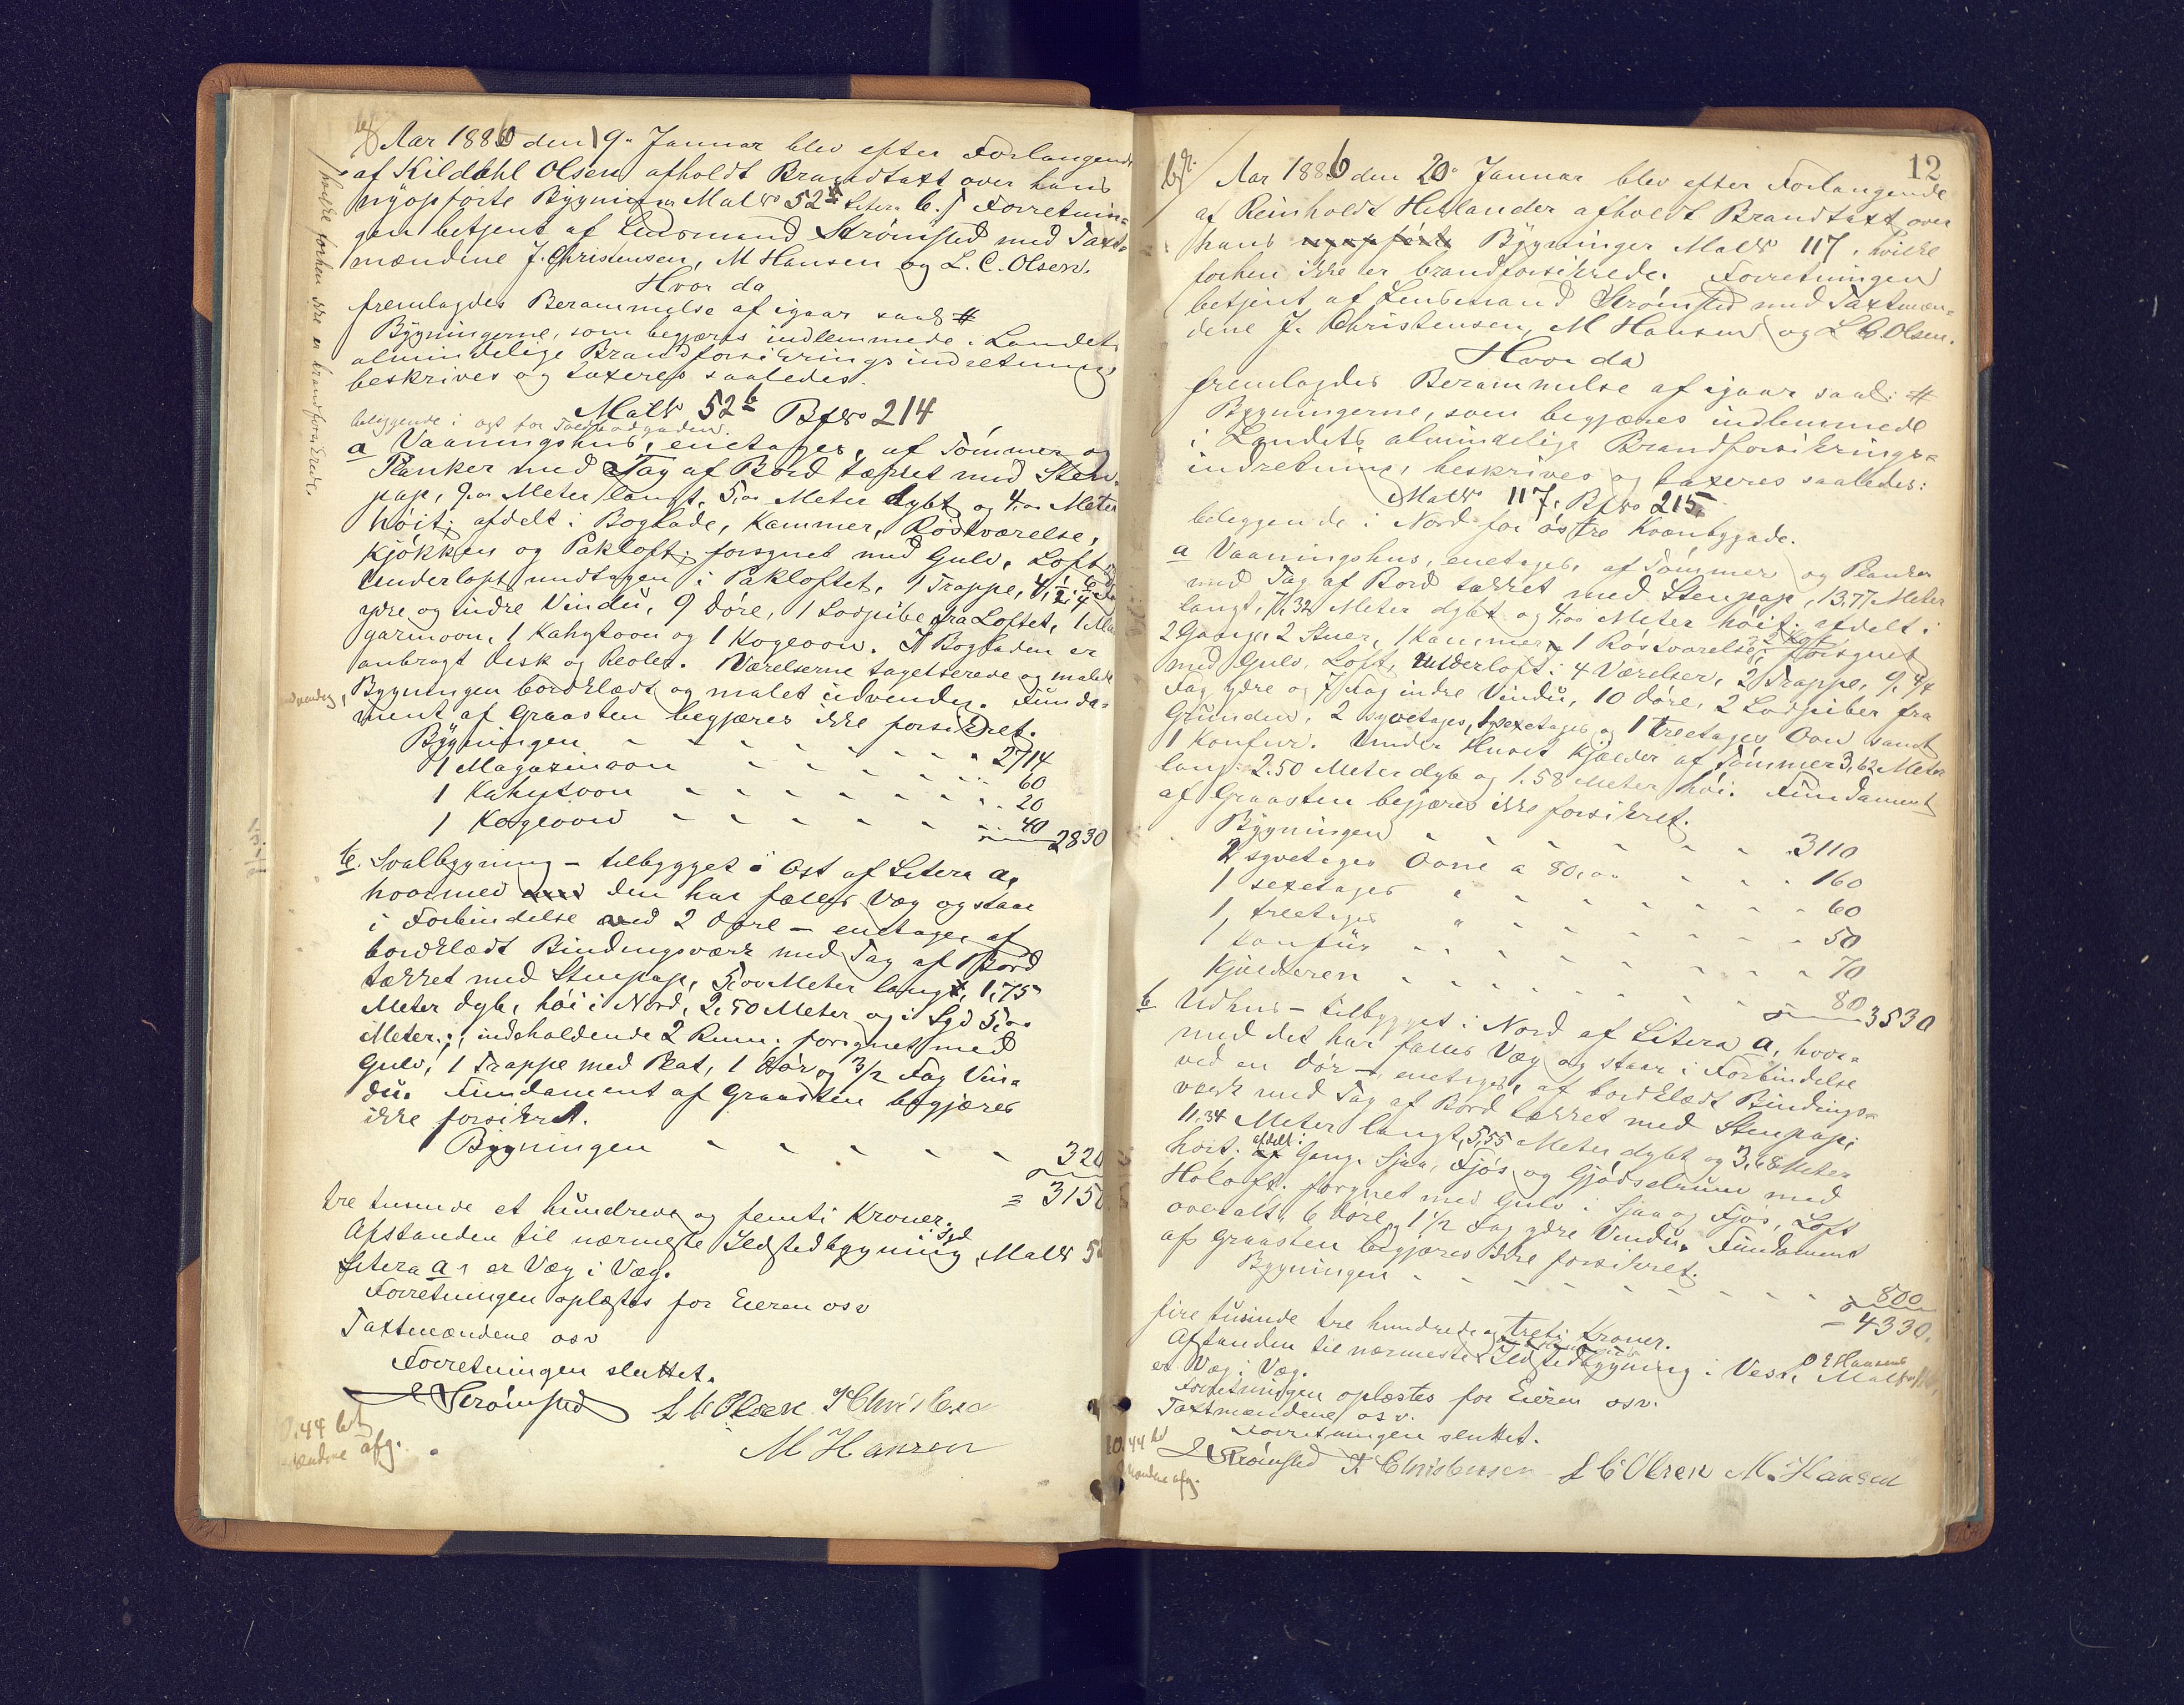 Aar 1886 den 19. Januar blev efter Forlangende
af Kildahl Olsen afholdt Brandtaxt over hans
nyopførte Bygning Mat No 52 b Litera b. Forretnin=
gen betjent af Lensmand Strömsted med Taxt=
mændene J. Christensen, M Hansen og L. C. Olsen.
Hvor da
fremlagdes Berammelse af igaar saal. #
Bygningerne, som begjæres indlemmede i Landets
almindelige Brandforsikringsindretning
beskrives og taxeres saaledes.
hvilke forhen ikke er brandforsikrede.
Mat No 52 b BfNo 214
beliggende i
a Vaaningshus, enetages, af Tömmer og
Planker med Tag af Bord tækket med Sten
pap, 9,00 Meter langt, 5,00 Meter dybt og 4,00 Meter
höit; afdelt i Boglade, Kammer, Röstværelse,
Kjökken og Pakloft; forsynet med Gulv, Loft
Underloft undtagen i Pakloftet, 1 Trappe,
ydre og indre Vindu, 9 Döre, 1 Lodpibe fra Loftet, 1 Ma
gazinoon, 1 Kahytoon og 1 Kogeoon. I Bogladen er
anbragt Disk og Reoler. Værelserne tapetserede og malede
Bygningen bordklædt og malet udvendig. Funda=
ment af Graasten begjæres ikke forsikret.
Bygningen 2714
1 Magazinoon 60
1 Kahytoon 20
1 Kogeoon 40 2830
b. Svalbygning – tilbygget i Ost af Litera a,
hvormed den har fælles Væg og staar
i Forbindelse ved 2 Döre – enetages af
bordklædt Bindingsværk med Tag af Bord
tækket med Stenpap, 5,00 Meter langt, 1,75
Meter dyb, höi i Nord, 2,50 Meter og i Syd 5,00
Meter; indeholdende 2 Rum: forsynet med
Gulv, 1 Trappe med Plat, 1 Dör og 3/2 Fag Vin=
du. Fundament af Graasten begjæres
ikke forsikret.
Bygningen 320
= 3150
tre tusinde et hundrede og femti Kroner.
Afstanden til nærmeste Ildstedbygning i Syd, Mat No
Litera a, er Væg i Væg.
Forretningen oplæstes for Eieren osv
Taxtmændene osv
Forretningen sluttet.
Strömsted L C Olsen J Christensen
M Hansen
12
Aar 1886 den 20. Januar blev efter Forlangende
af Reinholdt Hellander afholdt Brandtaxt over
hans nyopförte Bygninger Mat No 117, hvilke
forhen ikke er brandforsikrede. Forretningen
betjent af Lensmand Strömsted med Taxtmæn=
dene J. Christensen, M Hansen og L C Olsen.
Hvor da
fremlagdes Berammelse af igaar saal: #
Bygningerne, som begjæres indlemmede
i Landets almindelige Brandforsikrings=
indretning, beskrives og taxeres saaledes:
Mat No 117, BfNo 215,
beliggende i Nord for östre Kvænbygade.
a Vaaningshus, enetages, af Tömmer og Planker
med Tag af Bord tækket med Stenpap, 13,77 Meter
langt, 7,32 Meter dybt og 4,00 Meter höit; afdelt i
2 Gange, 2 Stuer, 1 Kammer, 1 Röstværelse, forsynet
med Gulv, Loft, Underloft i 4 Værelser, 2 Trappe, 9 4/4
Fag ydre og 7 Fag indre Vindu, 10 Döre, 2 Lodpiber fra
Grunden, 2 syvetages, 1 sexetages og 1 treetages Oon samt
1 Komfur. Under Huset Kjælder af Tömmer 3,62 Meter
lang, 2.50 Meter dyb og 1.58 Meter höi. Fundament
af Graasten begjæres ikke forsikret.
Bygningen 3110
2 syvetages Oone a 80,00 160
1 sexetages " 60
1, treetages " 50
1 Komfür 70
Kjælderen 80 3530
b Udhus – tilbygget i Nord af Litera a, hvor=
med det har fælles Væg og staar i Forbindelse
ved en Dör – enetages, af bordklædt Bindings=
værk med Tag af Bord tækket med Stenpap;
11,34 Meter langt, 5,55 Meter dybt og 3,68 Meter
höit; afdelt i Gang, Sjaa, Fjös og Gjödselrum med
Höloft. forsynet med Gulv i Sjaa og Fjös, Loft
overalt, 6 Döre, 1 1/2 Fag ydre Vindu. Fundament
af Graasten begjæres ikke forsikret.
Bygningen 800
= 4330.
fire tusinde tre hundrede og treti Kroner.
Afstanden til nærmeste Ildstedbygning i Vest, Mat No
er Væg i Væg.
Forretningen oplæstes for Eieren osv.
Taxtmændene osv.
Forretningen sluttet.
Strömsted J Christensen L C Olsen M. Hansen